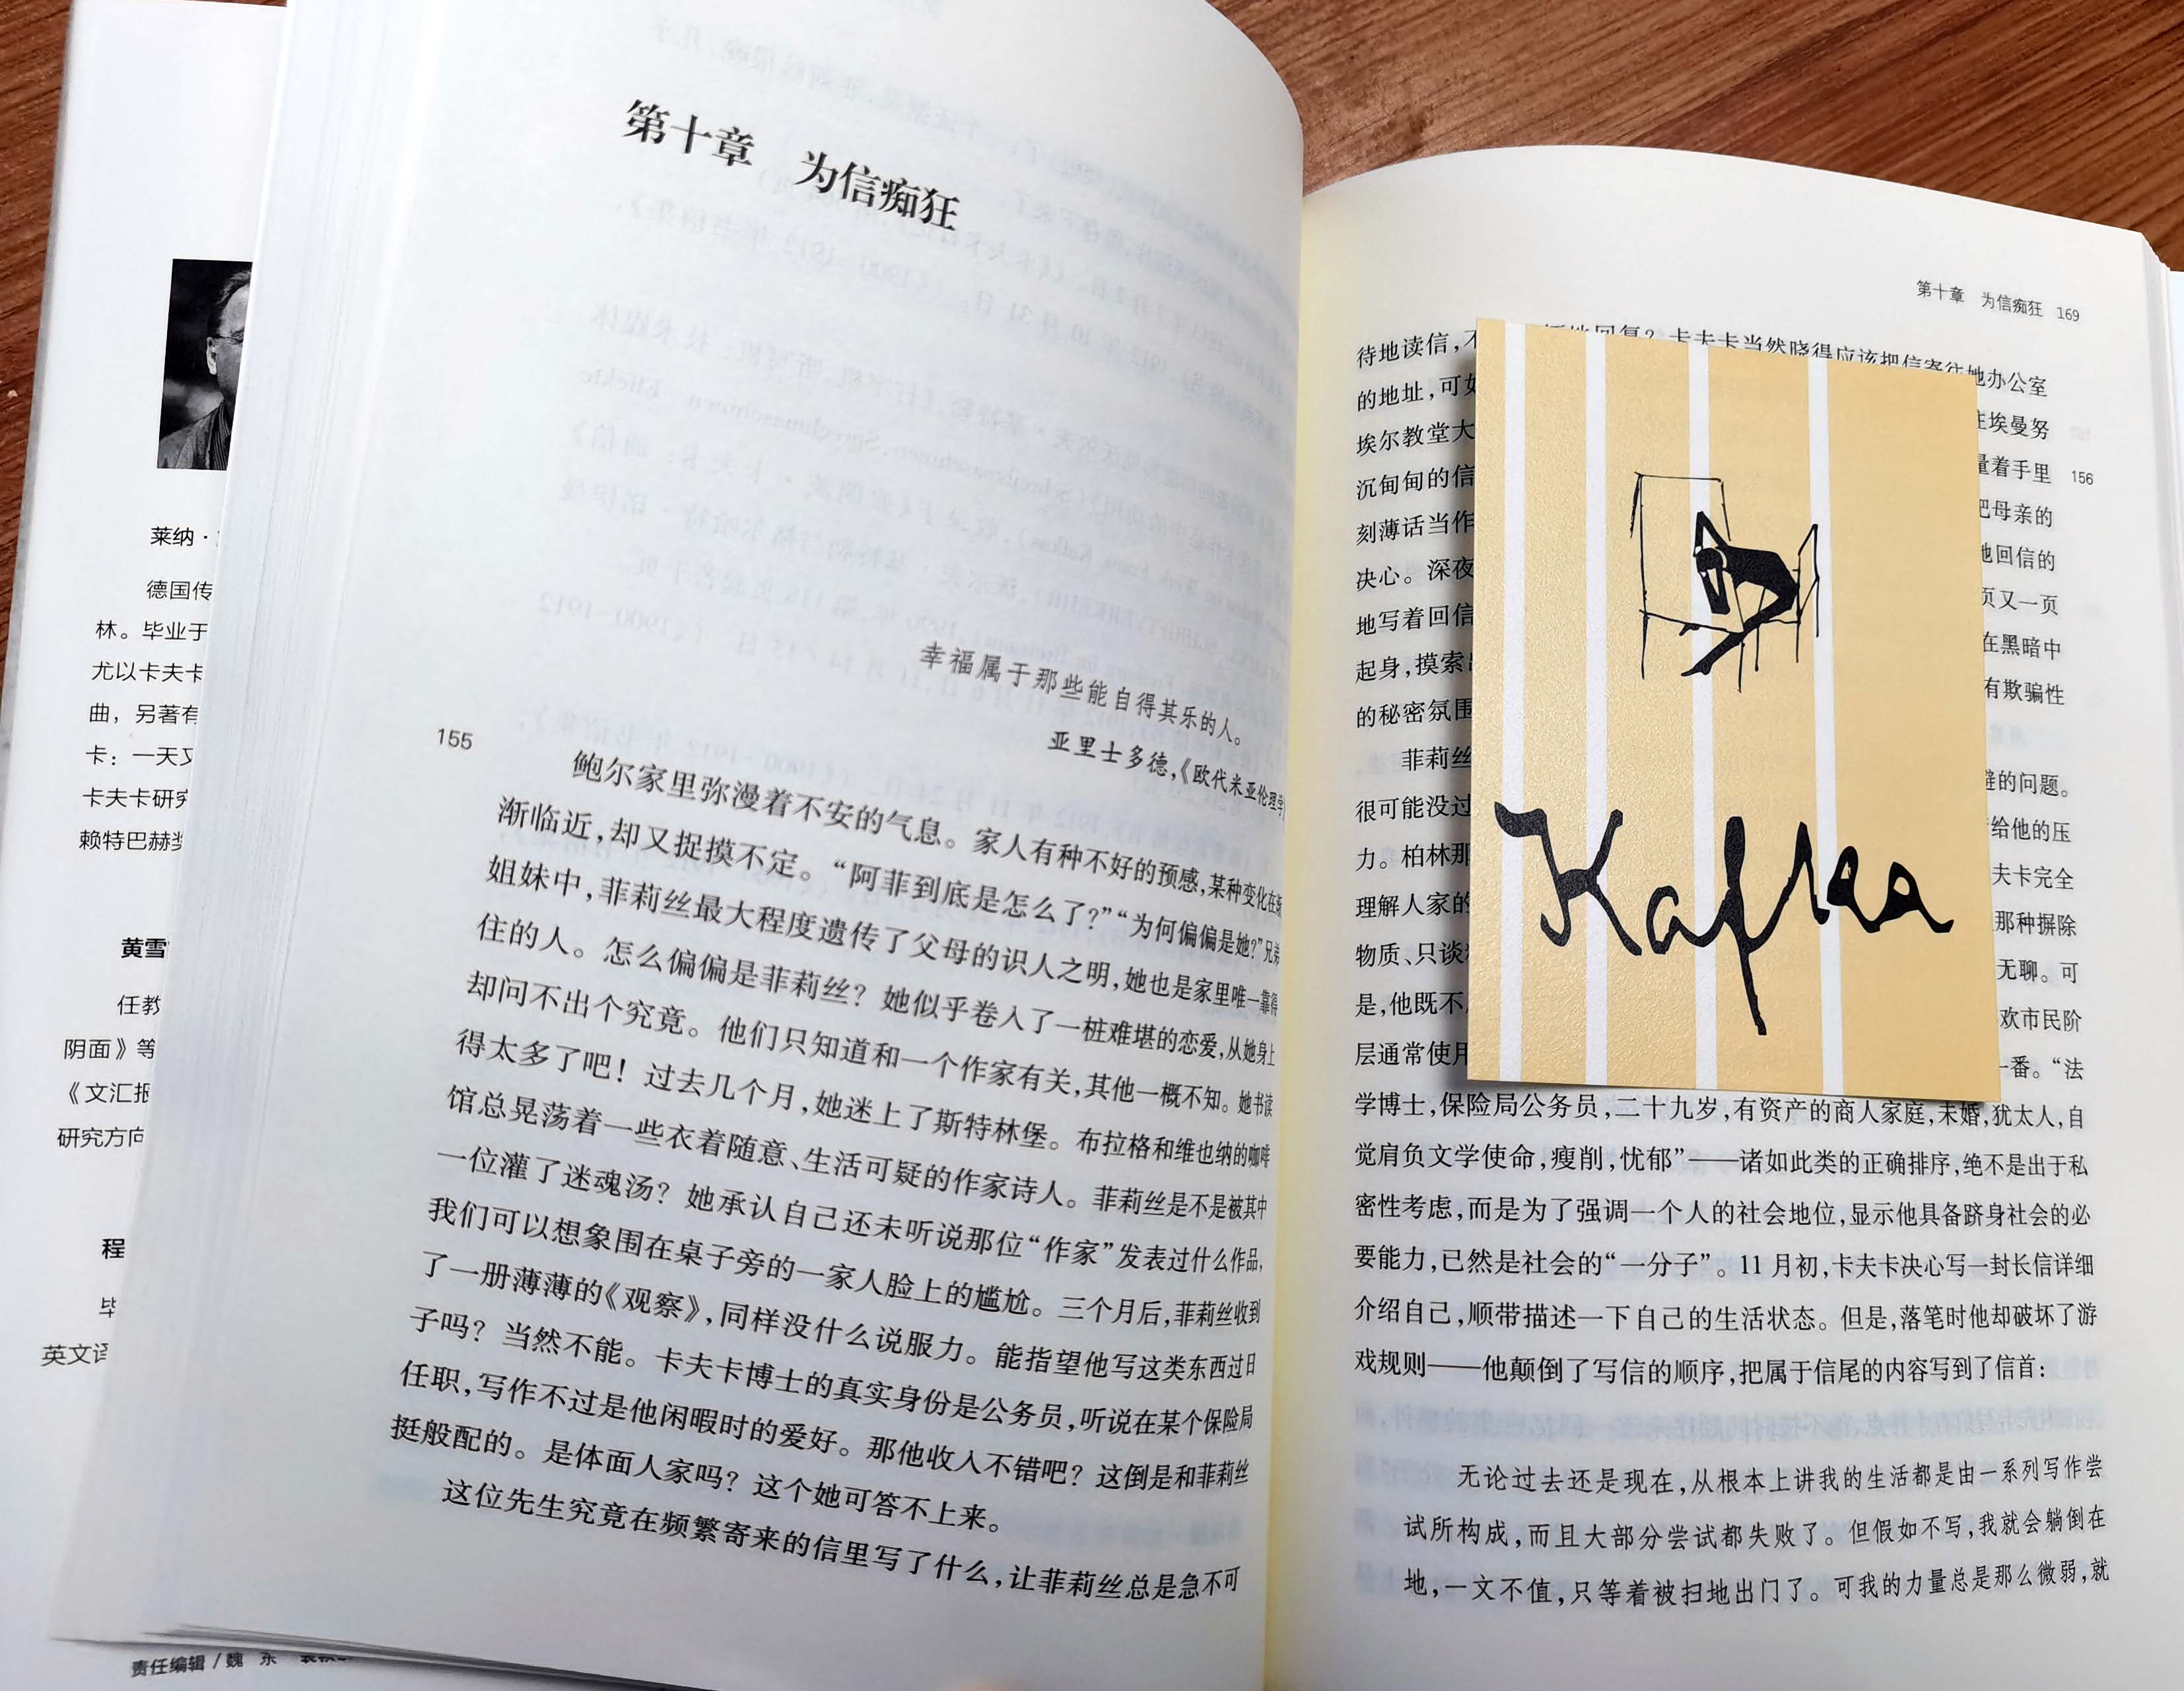 莱纳·
德国传
林。毕业于
尤以卡夫卡
曲，另著有
卡：一天又
卡夫卡研究
赖特巴赫奖
黄雪
任教
阴面》等
《文汇报
研究方向
程
毕
英文译
责任编辑 / 魏 东
第十章 为信痴狂
幸福属于那些能自得其乐的人。
亚里士多德，《欧代米亚伦理学
155
鲍尔家里弥漫着不安的气息。家人有种不好的预感，某种变化在逐
渐临近，却又捉摸不定。“阿菲到底是怎么了？”“为何偏偏是她？”兄弟
姐妹中，菲莉丝最大程度遗传了父母的识人之明，她也是家里唯一靠得
住的人。怎么偏偏是菲莉丝？她似乎卷入了一桩难堪的恋爱，从她身上
却问不出个究竟。他们只知道和一个作家有关，其他一概不知。她书读
得太多了吧！过去几个月，她迷上了斯特林堡。布拉格和维也纳的咖啡
馆总晃荡着一些衣着随意、生活可疑的作家诗人。菲莉丝是不是被其中
一位灌了迷魂汤？她承认自己还未听说那位“作家”发表过什么作品，
我们可以想象围在桌子旁的一家人脸上的尴尬。三个月后，菲莉丝收到
了一册薄薄的《观察》，同样没什么说服力。能指望他写这类东西过日
子吗？当然不能。卡夫卡博士的真实身份是公务员，听说在某个保险局
任职，写作不过是他闲暇时的爱好。那他收入不错吧？这倒是和菲莉丝
挺般配的。是体面人家吗？这个她可答不上来。
这位先生究竟在频繁寄来的信里写了什么，让菲莉丝总是急不可
第十章 为信痴狂 169
待地读信，不 地回复？卡夫卡当然晓得应该把信寄往她办公室
的地址，可如
埃尔教堂大 往埃曼努
沉甸甸的信 量着手里 156
刻薄话当作 把母亲的
决心。深夜 他回信的
地写着回信 页又一页
起身，摸索 在黑暗中
的秘密氛围 有欺骗性
菲莉丝 避的问题。
很可能没过 给他的压
力。柏林那 夫卡完全
理解人家的 那种摒除
物质、只谈 无聊。可
是，他既不 欢市民阶
层通常使用 一番。“法
学博士，保险局公务员，二十九岁，有资产的商人家庭，未婚，犹太人，自
觉肩负文学使命，瘦削，忧郁”——诸如此类的正确排序，绝不是出于私
密性考虑，而是为了强调一个人的社会地位，显示他具备跻身社会的必
要能力，已然是社会的“一分子”。11 月初，卡夫卡决心写一封长信详细
介绍自己，顺带描述一下自己的生活状态。但是，落笔时他却破坏了游
戏规则——他颠倒了写信的顺序，把属于信尾的内容写到了信首：
无论过去还是现在，从根本上讲我的生活都是由一系列写作尝
试所构成，而且大部分尝试都失败了。但假如不写，我就会躺倒在
地，一文不值，只等着被扫地出门了。可我的力量总是那么微弱，就
Kafka